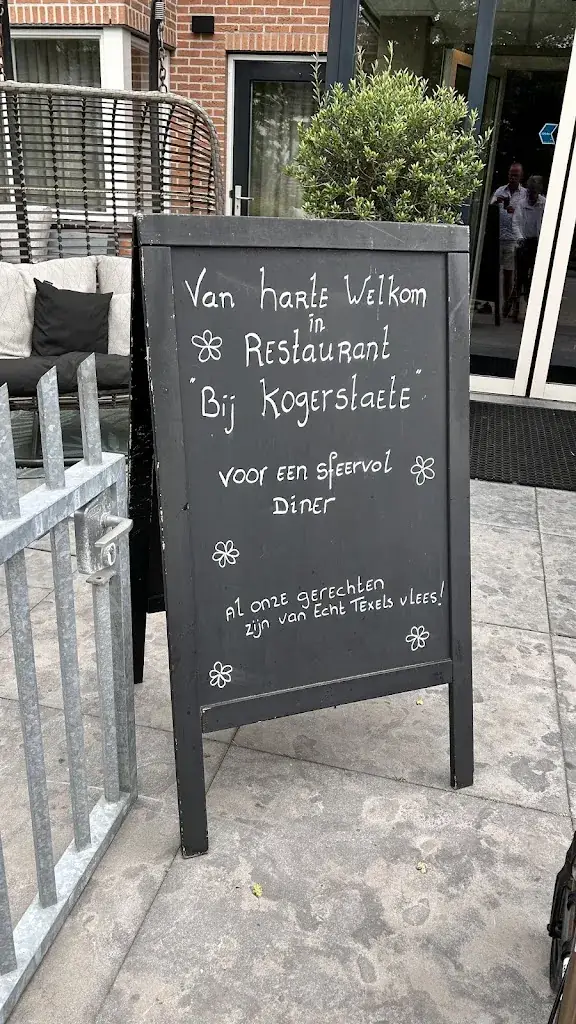 Van harte Welkom
in
Restaurant
"Bij Kogerstaete"
voor een sfeervol
Diner
Al onze gerechten
zijn van Echt Texels vlees!